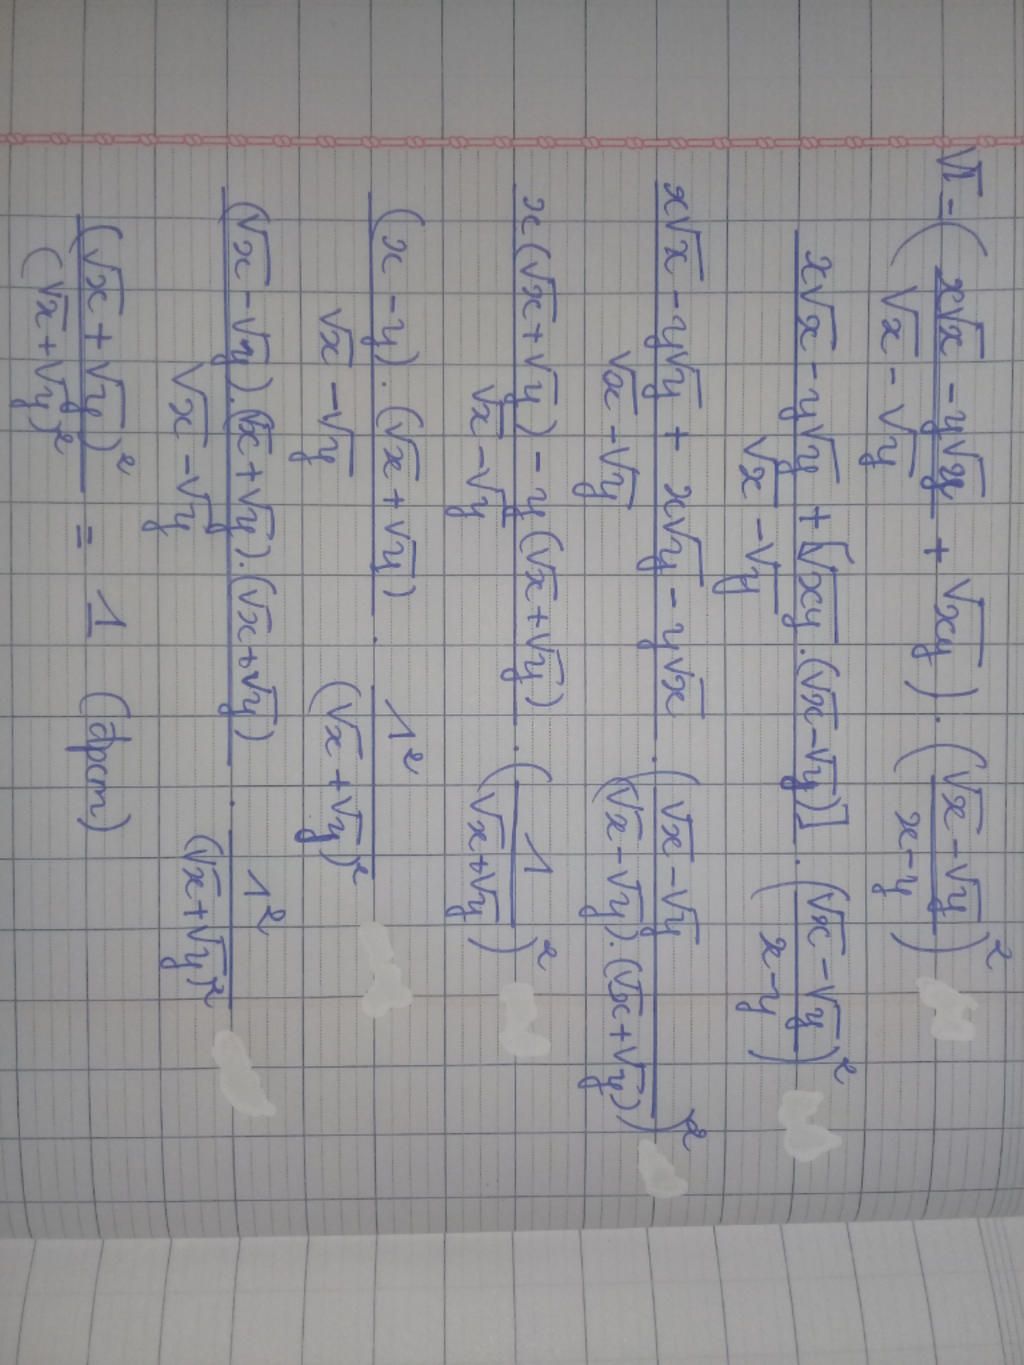 VT = ( (x√x - y√y)/(√x - √y) + √xy ) . ( (√x - √y)/(x - y) )²
(x√x - y√y + [√xy . (√x - √y)])/(√x - √y) . ( (√x - √y)/(x - y) )²
(x√x - y√y + x√y - y√x)/(√x - √y) . ( (√x - √y)/((√x - √y).(√x + √y)) )²
(x(√x + √y) - y(√x + √y))/(√x - √y) . ( 1/(√x + √y) )²
((x - y).(√x + √y))/(√x - √y) . 1²/(√x + √y)²
((√x - √y).(√x + √y).(√x + √y))/(√x - √y) . 1²/(√x + √y)²
(√x + √y)²/(√x + √y)² = 1 (đpcm)